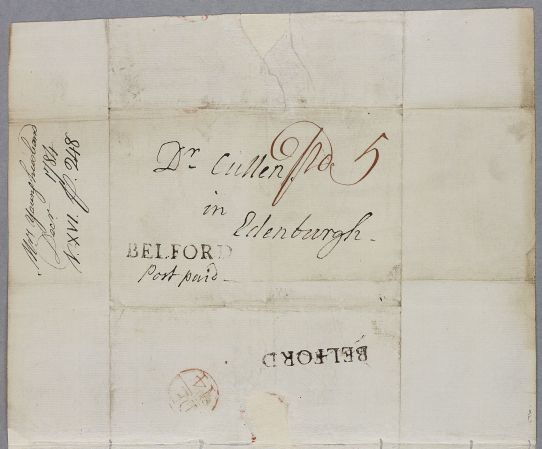 Mrs Younghusband
Decr. 1784
N XVI. p. 248
Dr. Cullen pd. 5
in
Edenburgh.
BELFORD
Post paid
BELFORD
14